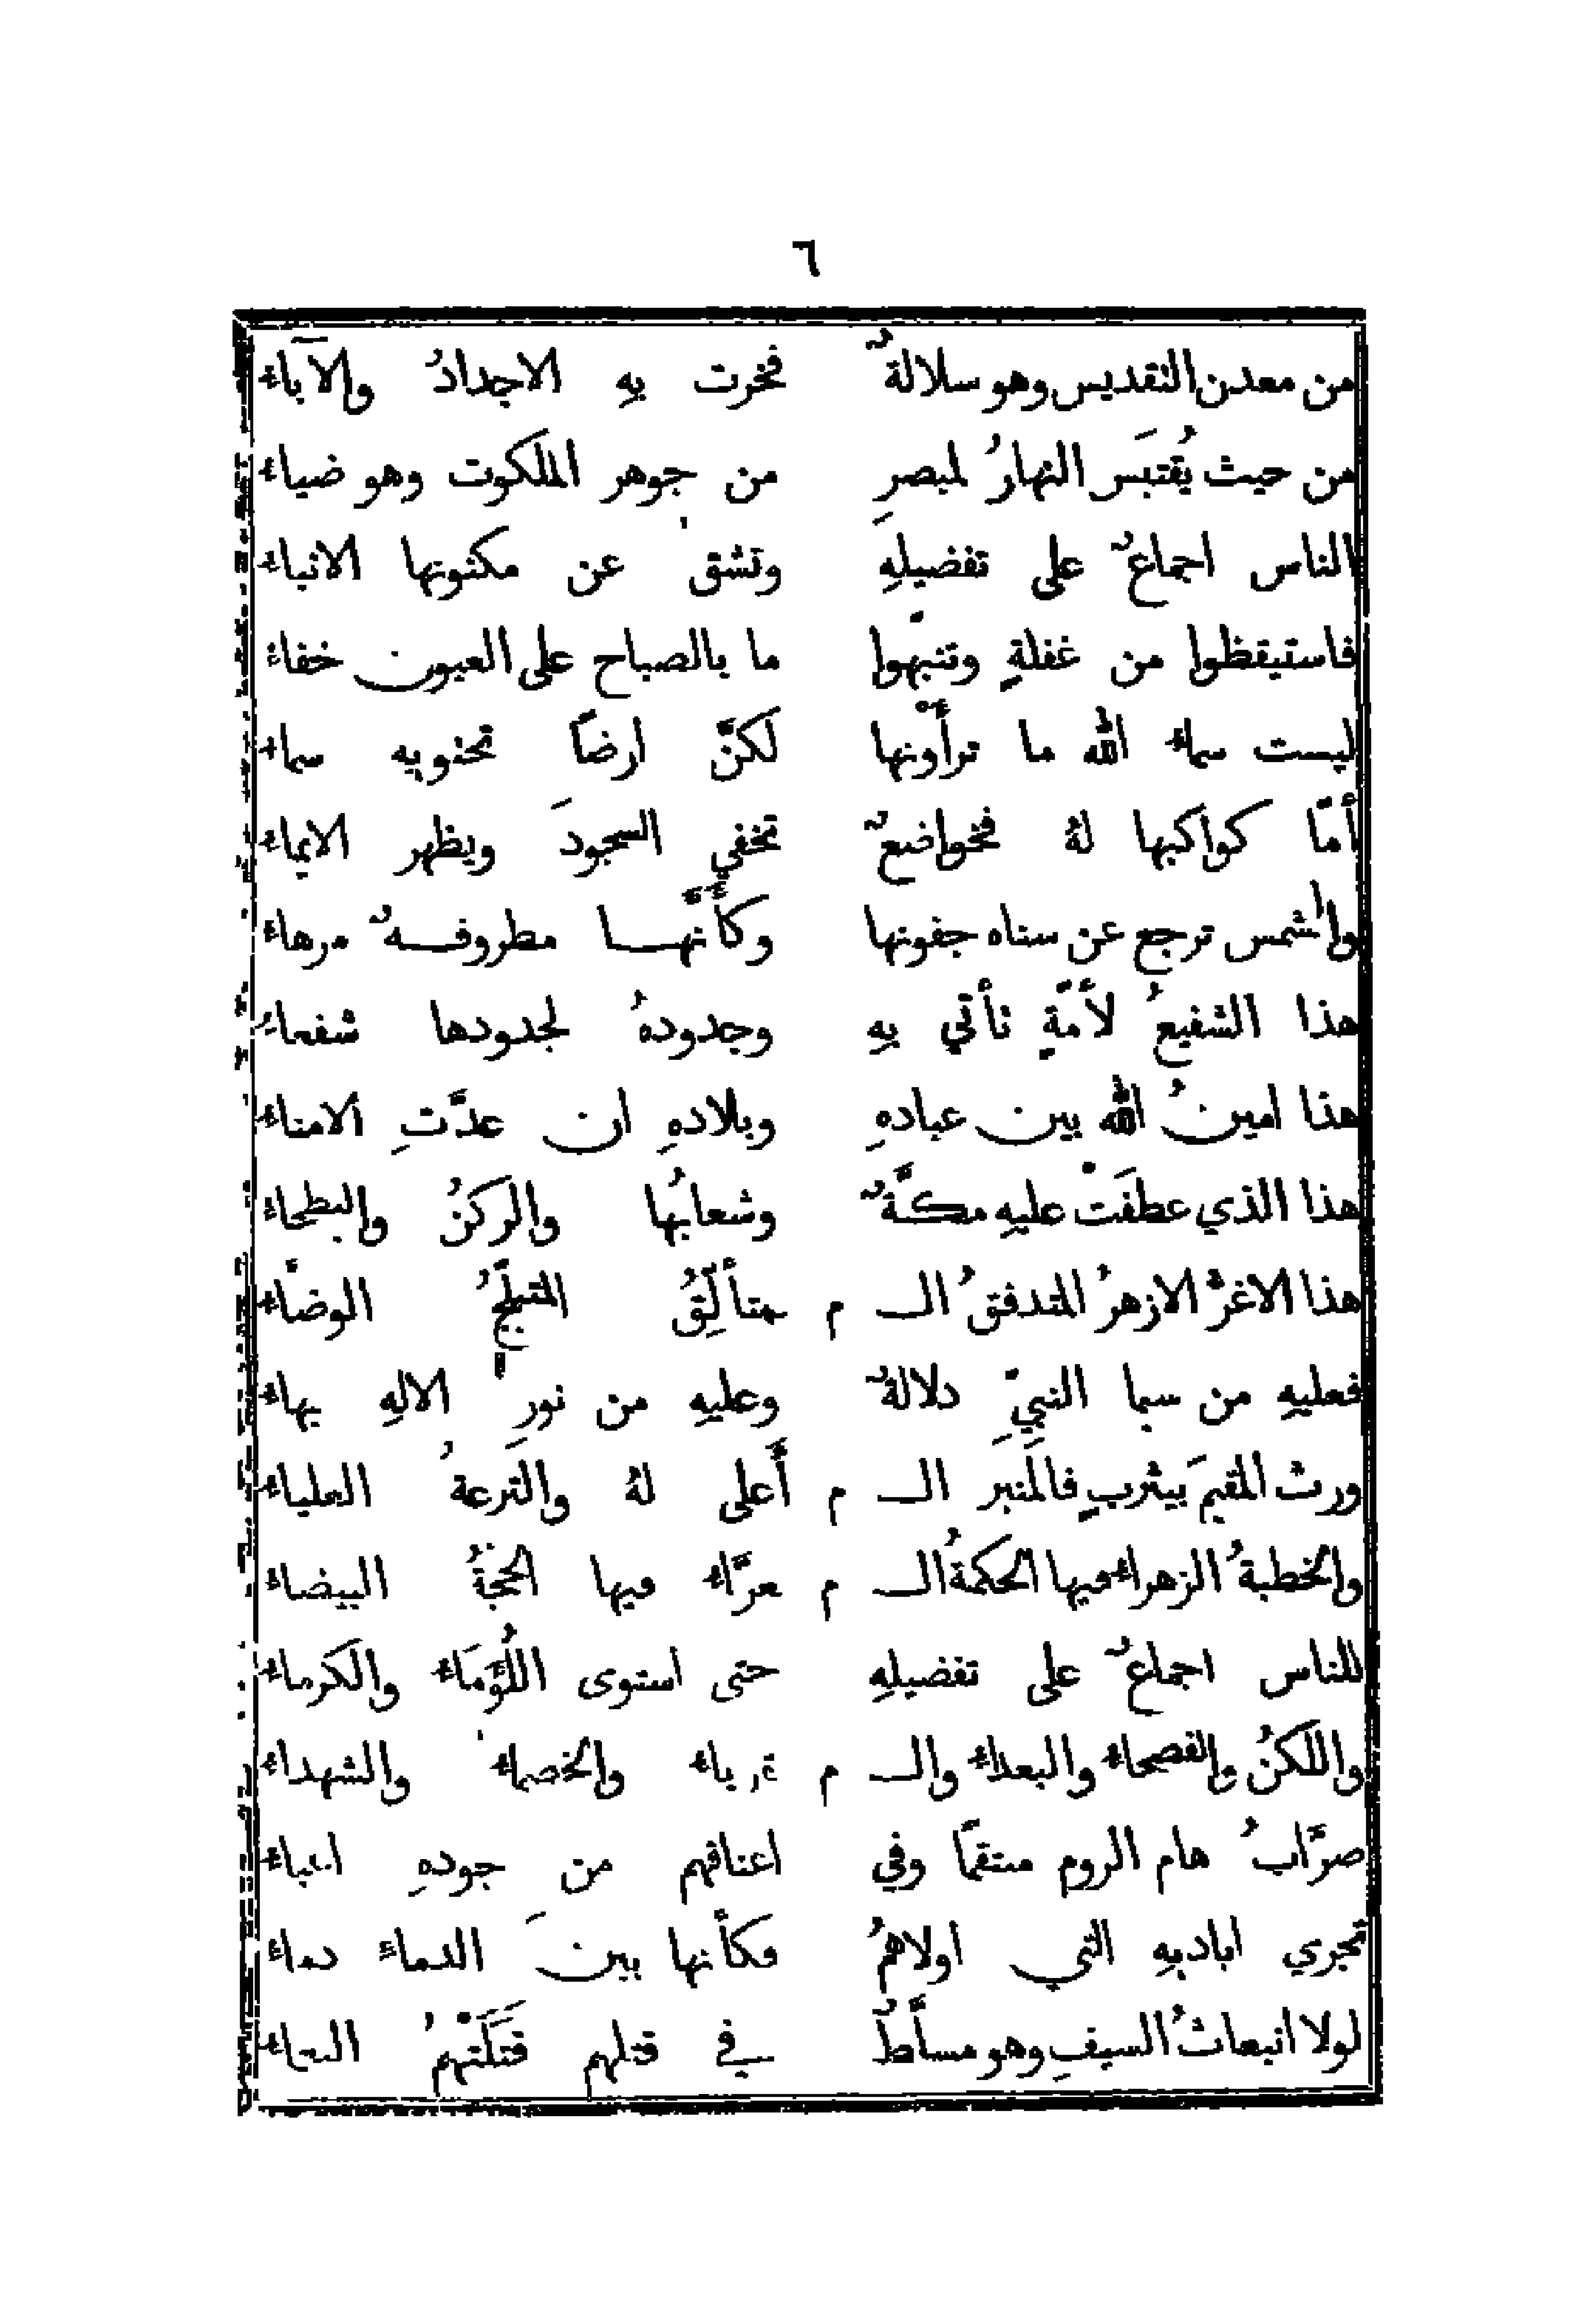 ٦
من معدن التقديس وهو سلالةٌ فخرت بهِ الاجدادُ والآباءُ
من حيث يُقتبَس النهارُ لمبصرِ من جوهر الملكوت وهو ضياءُ
الناس اجماعٌ على تفضيلهِ وتشق عن مكنونها الانباءُ
فاستيقظوا من غفلةٍ وتنبّهوا ما بالصباح على العيون خفاءُ
ليست سماءُ الله ما ترأَوْنها لكنّ ارضاً تحتويه سماءُ
أمّا كواكبها لهُ فخواضعٌ تخفي السجودَ ويظهر الايماءُ
والشمس ترجع عن سناه جفونها وكأَنَّهـا مطروفـةٌ مرهاءُ
هذا الشفيعُ لأمّةٍ تأتي بهِ وجدودهُ لجدودها شفعاءُ
هذا امينُ الله بين عبادهِ وبلادهِ ان عدّتِ الامناءُ
هذا الذي عطفَتْ عليهِ مكّةٌ وشعابُها والركنُ والبطحاءُ
هذا الاغرُّ الازهرُ المتدفقُ الـ م ـمتأَلِّقُ المتبلّجُ الوضّاءُ
فعليهِ من سيما النبيِّ دلالةٌ وعليهِ من نورِ الالهِ بهاءُ
ورث المقيمَ بيثربٍ فالمنبرَ الـ م أَعلى لهُ والترعةُ العلياءُ
والخطبةُ الزهراءُ فيها الحكمةُ الـ م ـغرّاءُ فيها الحجّةُ البيضاءُ
للناس اجماعٌ على تفضيلهِ حتى استوى اللُّؤَمَاءُ والكرماءُ
واللكنُ والفصحاءُ والبعداءُ والـ م ـقرباءُ والخصماءُ والشهداءُ
ضرَّابُ هام الروم منتقمًا وفي اعناقهم من جودهِ اعباءُ
تجري اياديهِ التي اولاهمُ فكأنها بينَ الدماءِ دماءُ
لولا انبعاثُ السيفِ وهو مسلَّطٌ في قتلهم قَتَلَتْهمُ النعماءُ